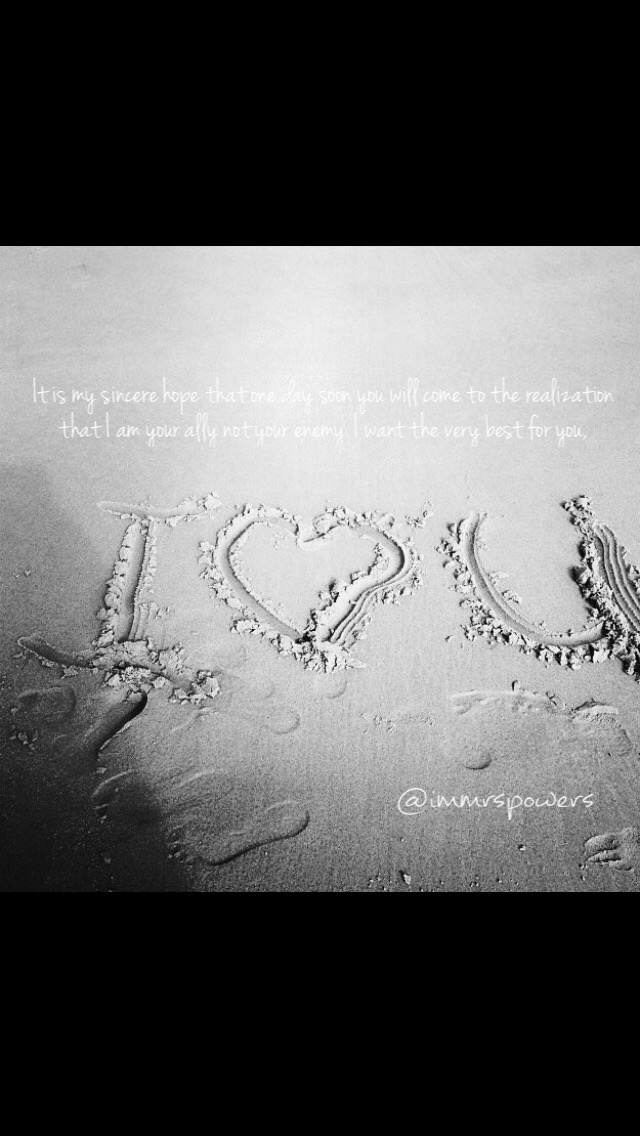 It is my sincere hope that one day soon you will come to the realization
that I am your ally not your enemy. I want the very best for you,
I ♥ U
@immrspowers